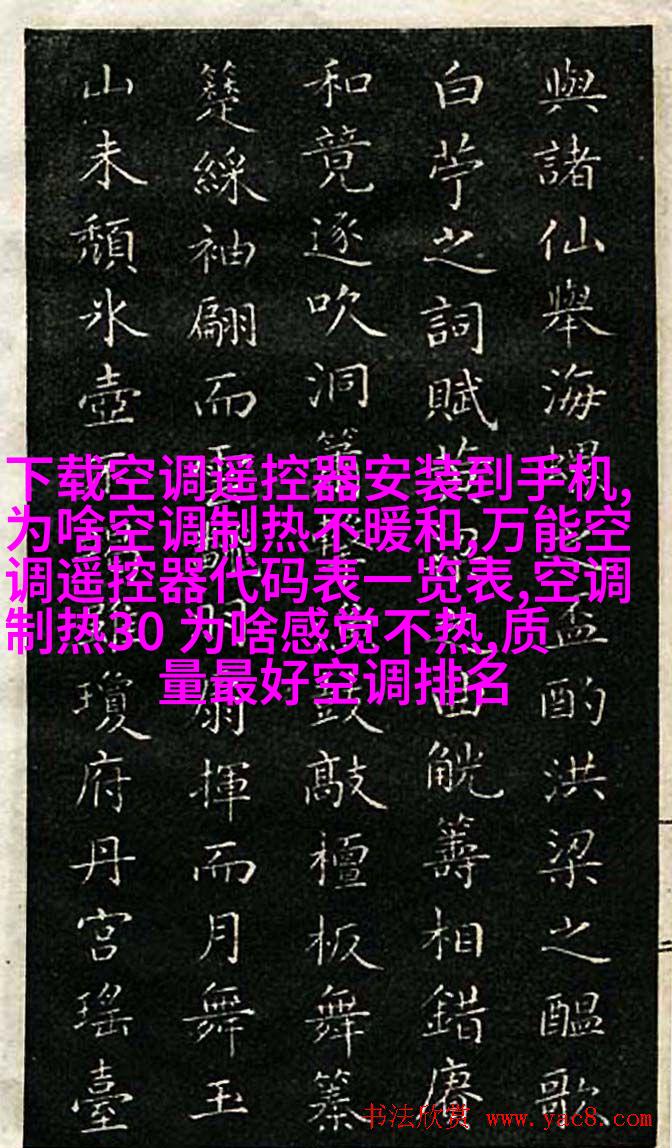 與諸仙舉海螺盃酌洪梁之醞歌
白苧之詞賦曲觥籌相錯賡
和竟逐吹洞簫鼓敲檀板舞
綵袖翩而雲扇揮而月舞玉
山未頹氷壺瓊府丹宮瑤臺
下载空调遥控器安装到手机,
为啥空调制热不暖和,万能空
调遥控器代码表一览表,空调
制热30 为啥感觉不热,质
量最好空调排名
书法欣赏 www.yac8.com